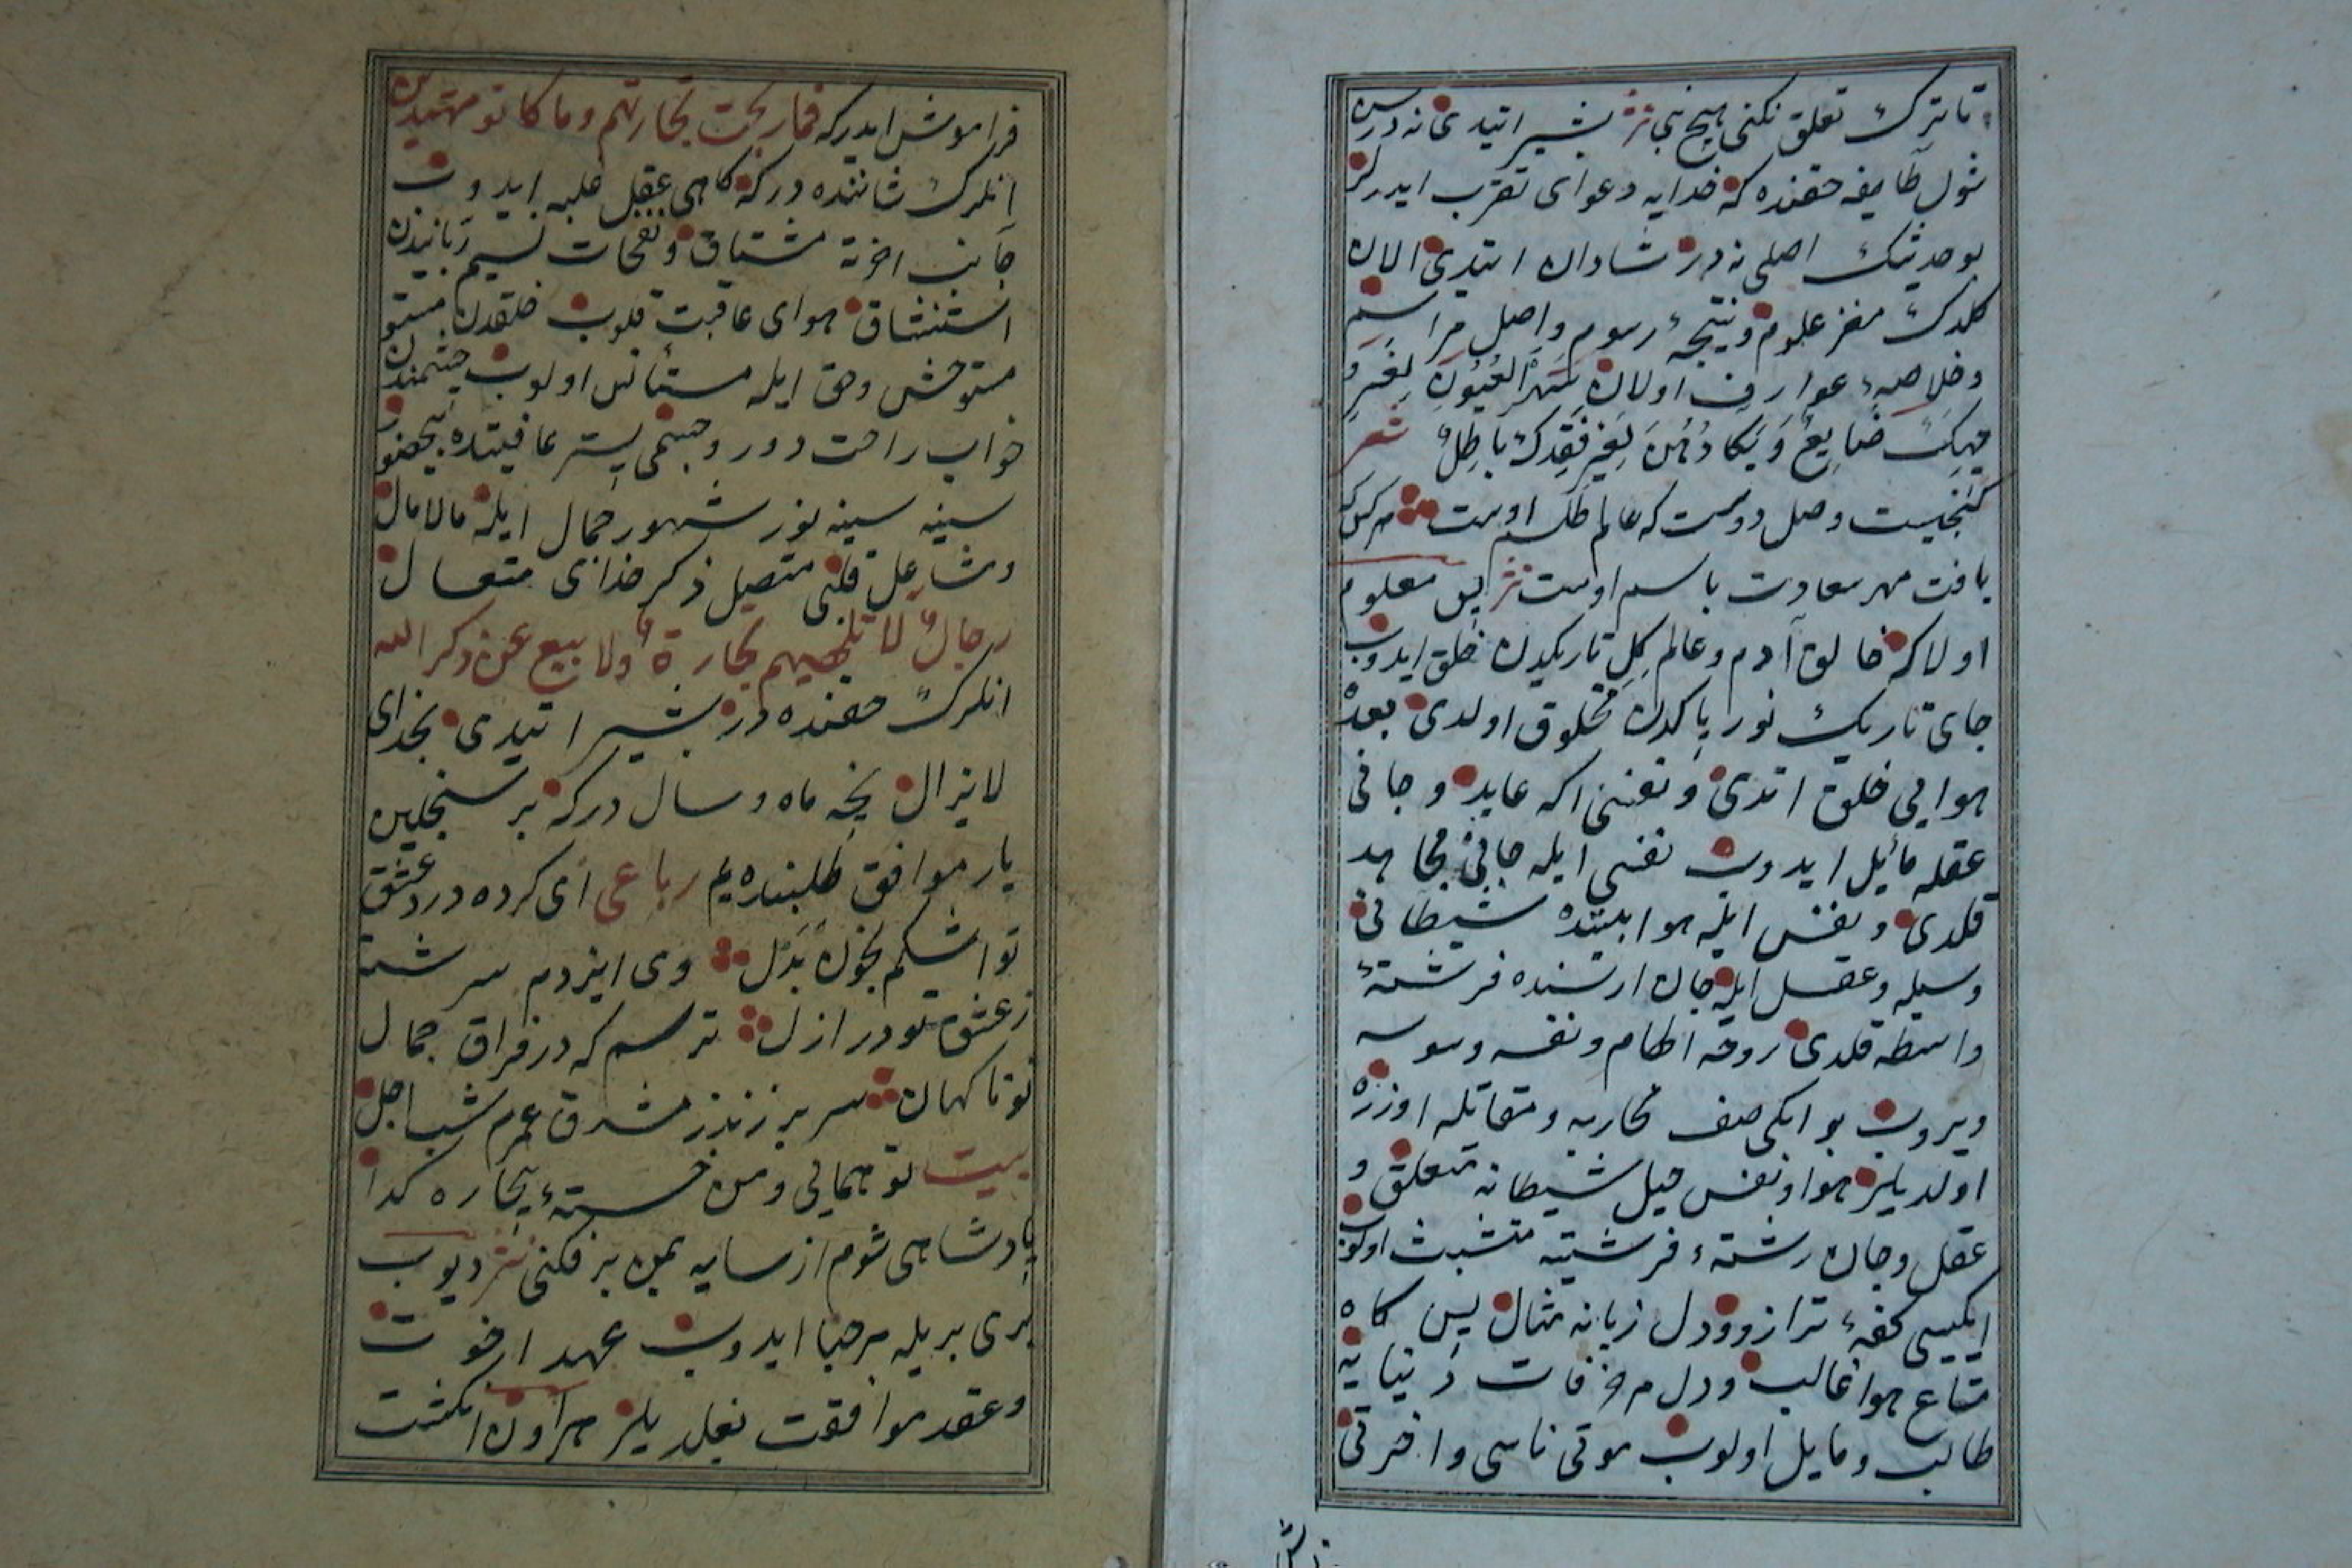 تا ترك تعلق نكنى هيچ نبى نثر بشير ايتدى نه درسن
شول طايفه حقنده كه خدايه دعواى تقرب ايدرلر
بو حديثك اصلى نه در شادان ايتدى الان
كلدك مغز علوم ونتيجهٔ رسوم واصل مراسم
وخلاصهٔ عوارف اولان سَهَرُ الْعُيُونِ لِغَيْرِ و
جهِكَ ضَايِعٌ وَبُكَاؤُهُنَ لِغَيْرِ فَقْدِكَ بَاطِلٌ شعر
كنجيست وصل دوست كه عالم طلسم اوست هركس كه
يافت مهر سعادت باسم اوست نثر پس معلوم
اولا كه خالق آدم وعالم كِل تاريكدن خلق ايدوب
جاى تاريك نور پاكدن مخلوق اولدى بعده
هوايى خلق اتدى ونفسى اكه عايد وجانى
عقله مائيل ايدوب نفسى ايله جانى مجاهد
قلدى ونفس ايله هوا بيننده شيطانى
وسيله وعقل ايله جان ارسنده فرشتهٔ
واسطه قلدى روحه الهام ونفسه وسوسه
ويروب بو ايكى صف محاربه ومقاتله اوزره
اولديلر هوا ونفس حيل شيطانه متعلق و
عقل وجان رشتهٔ فرشتيه متشبث اولوب
ايكيسى كفهٔ ترازو ودل زبانه مثال پس كاه
متاع هوا غالب ودل مزخفات دنيايه
طالب ومايل اولوب موتى ناسى واخرتى
فراموش ايدركه فما ربحت تجارتهم وما كانو مهتدين
انلرك شاننده در كه كاهى عقل غلبه ايدوب
جانب اخرته مشتاق ونفحات نسيم ربانيدن
استنشاق هواى عاقبت قلوب خلقدن
مستوحش وحق ايله مستأنس اولوب چشمندن
خواب راحت دور وجسمى بستر عافيتده بيحضور
سينه سينه نور شهور جمال ايله مالامال
ومشاعل قلبى متصل ذكر خداى متعال
رجالٌ لا تلهيهم تجارةٌ ولا بيع عن ذكر الله
انلرك حقنده در بشير ايتدى بخداى
لايزال نيجه ماه وسال دركه بر سنجلين
يار موافق طلبنده يم رباعى اى كرده درد عشق
تو اشكم بخون بدل وى ايزدم سرشته
زعشق تو در ازل ترسم كه در فراق جمال
تو ناكهان سر بر زند ز مشرق عمرم شب اجل
بيت تو همايى ومن خستهٔ بيچاره كدا
پادشاهى شوم از سايه بمن بر فكنى نثر ديوب
برى بريله مرحبا ايدوب عهد اخوت
وعقد موافقت بغلديلر هراون انكشت